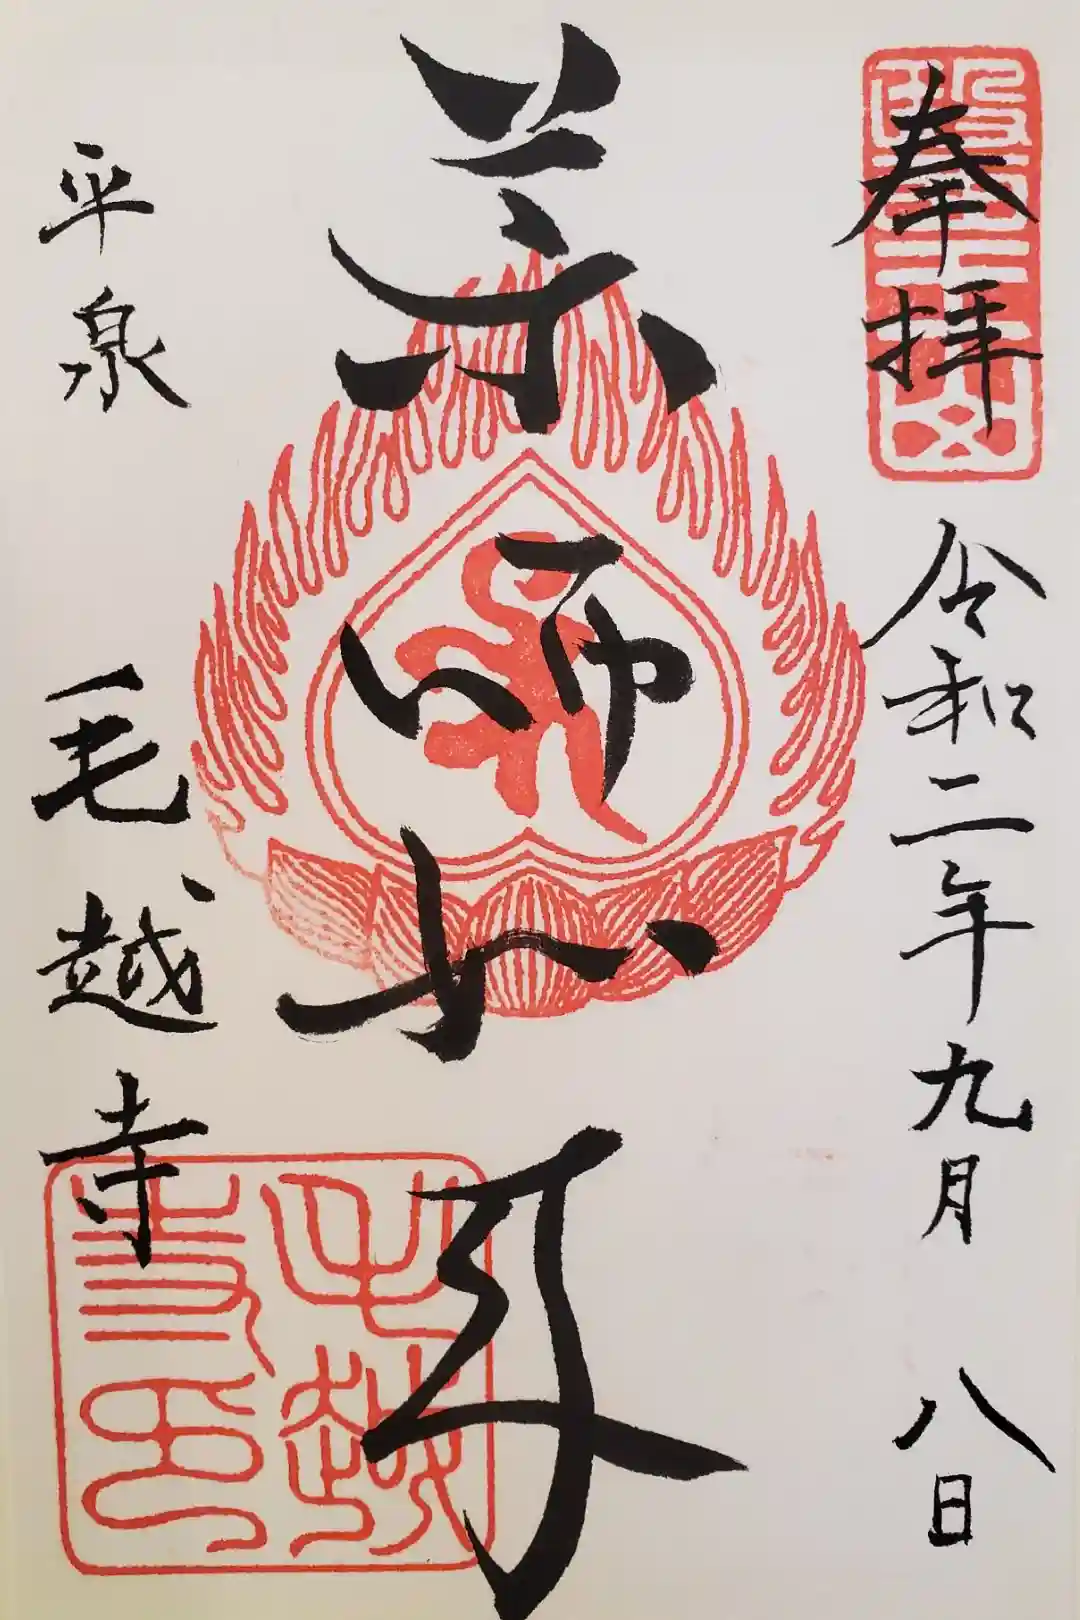 奉拝
令和二年九月 八日
薬師如来
平泉 毛越寺
醫王山
毛越
寺印